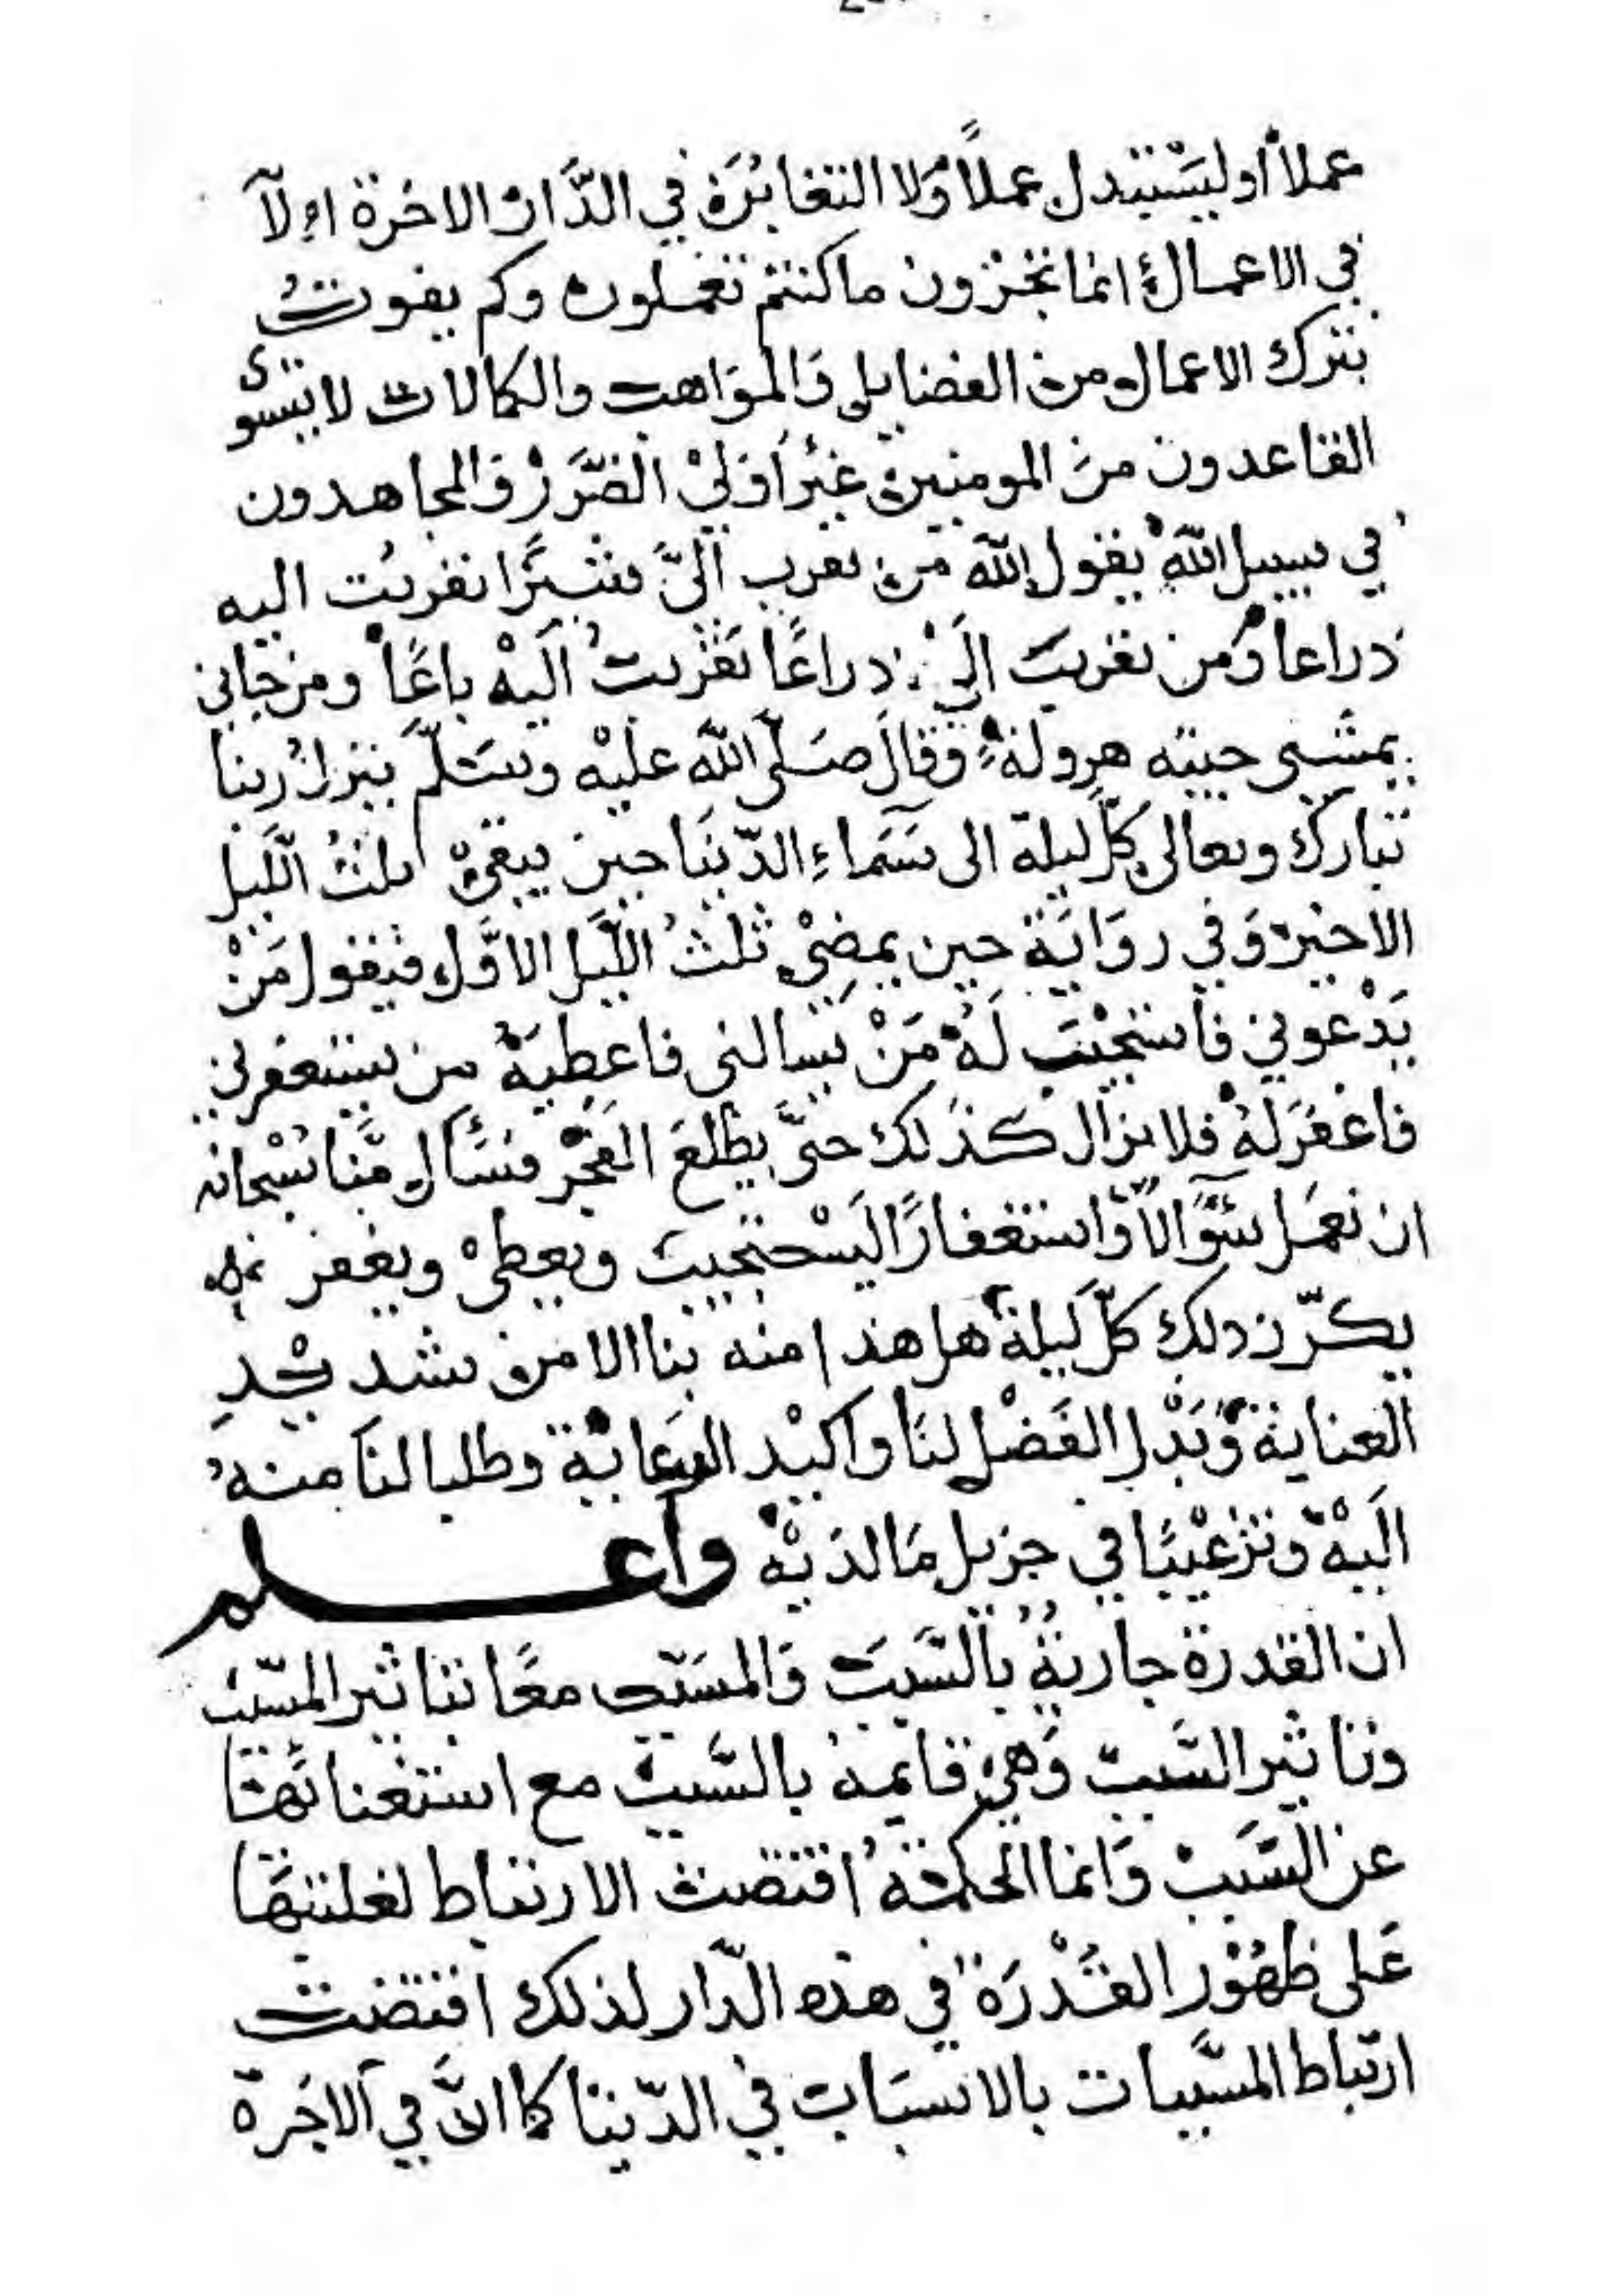 عملاً أو ليستبدل عملاً ولا التغابر في الدار الاخرة الآ
في الاعمال انما تجزون ما كنتم تعملون وكم يفوت
بترك الاعمال من الفضايل والمواهب والكمالات لا يستوى
القاعدون من المومنين غير أولي الضرر والمجاهدون
في سبيل الله يقول الله من تقرب اليّ شبرًا تقربت اليه
ذراعا ومن تقرب اليّ ذراعًا تقربت اليه باعًا ومن جاني
يمشى جيته هرولة وقال صلى الله عليه وسلم ينزل ربنا
تبارك وتعالى كل ليلة الى سماء الدنيا حين يبقى ثلث الليل
الاخير وفي رواية حين يمضي ثلث الليل الاول فيقول من
يدعوني فاستجيب له من يسالنى فاعطيه من يستغفرني
فاغفر له فلا يزال كذلك حتى يطلع الفجر فسال منا سبحانه
ان نعمل سؤالاً واستغفارًا ليستجيب ويعطي ويغفر
يكرر ذلك كل ليلة هل هذا منه بنا الا من شد يد
العناية وبذل الفضل لنا واكيد الرعاية وطلبا لنا منه
اليه وترغيبًا في جزيل ما لديه واعلم
ان القدرة جارية بالسبب والمسبب معًا بتاثير المسبب
وتاثير السبب وهي قايمة بالسبب مع استغنائها
عن السبب وانما الحكمة اقتضت الارتباط لغلبتها
على ظهور القدرة في هذه الدار لذلك اقتضت
ارتباط المسببات بالاسباب في الدنيا كما انّ في الاخرة